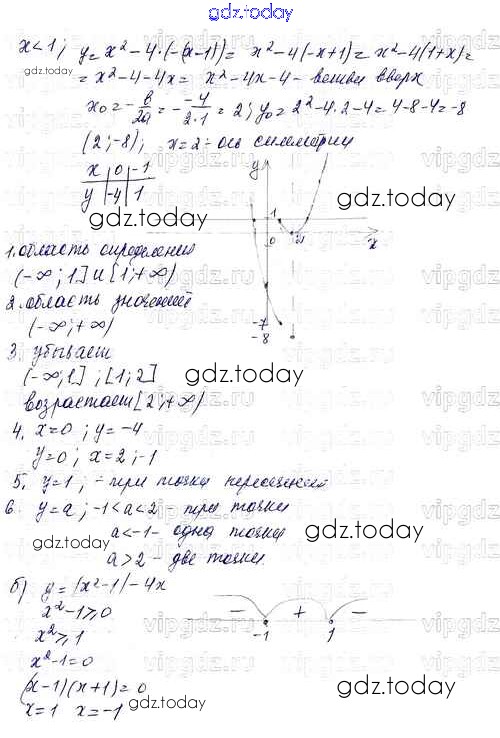 gdz.today
x<1; y=x²-4·(-(x-1))= x²-4(-x+1)=x²-4(1+x)=
=x²-4-4x= x²-4x-4- ветви вверх
x₀=-в/2a=-(-4)/(2·1)=2; y₀=2²-4·2-4=4-8-4=-8
(2;-8); x=2- ось симметрии
x | 0 | -1
y | -4 | 1
y
1
0
x
-7
-8
1. область определения
(-∞;1] и [1;+∞)
2. область значений
(-∞;+∞)
3. убывает
(-∞;1] ; [1;2]
возрастает [2;+∞)
4. x=0 ; y=-4
y=0; x=2;-1
5. y=1; - три точки пересечения
6. y=a; -1<a<2 - три точки
a<-1- одна точка
a>2 - две точки.
б) y=|x²-1|-4x
x²-1≥0
x²≥1
x²-1=0
(x-1)(x+1)=0
x=1 x=-1
- + -
-1 1
gdz.today
gdz.today
gdz.today
gdz.today
gdz.today
gdz.today
gdz.today
gdz.today
gdz.today